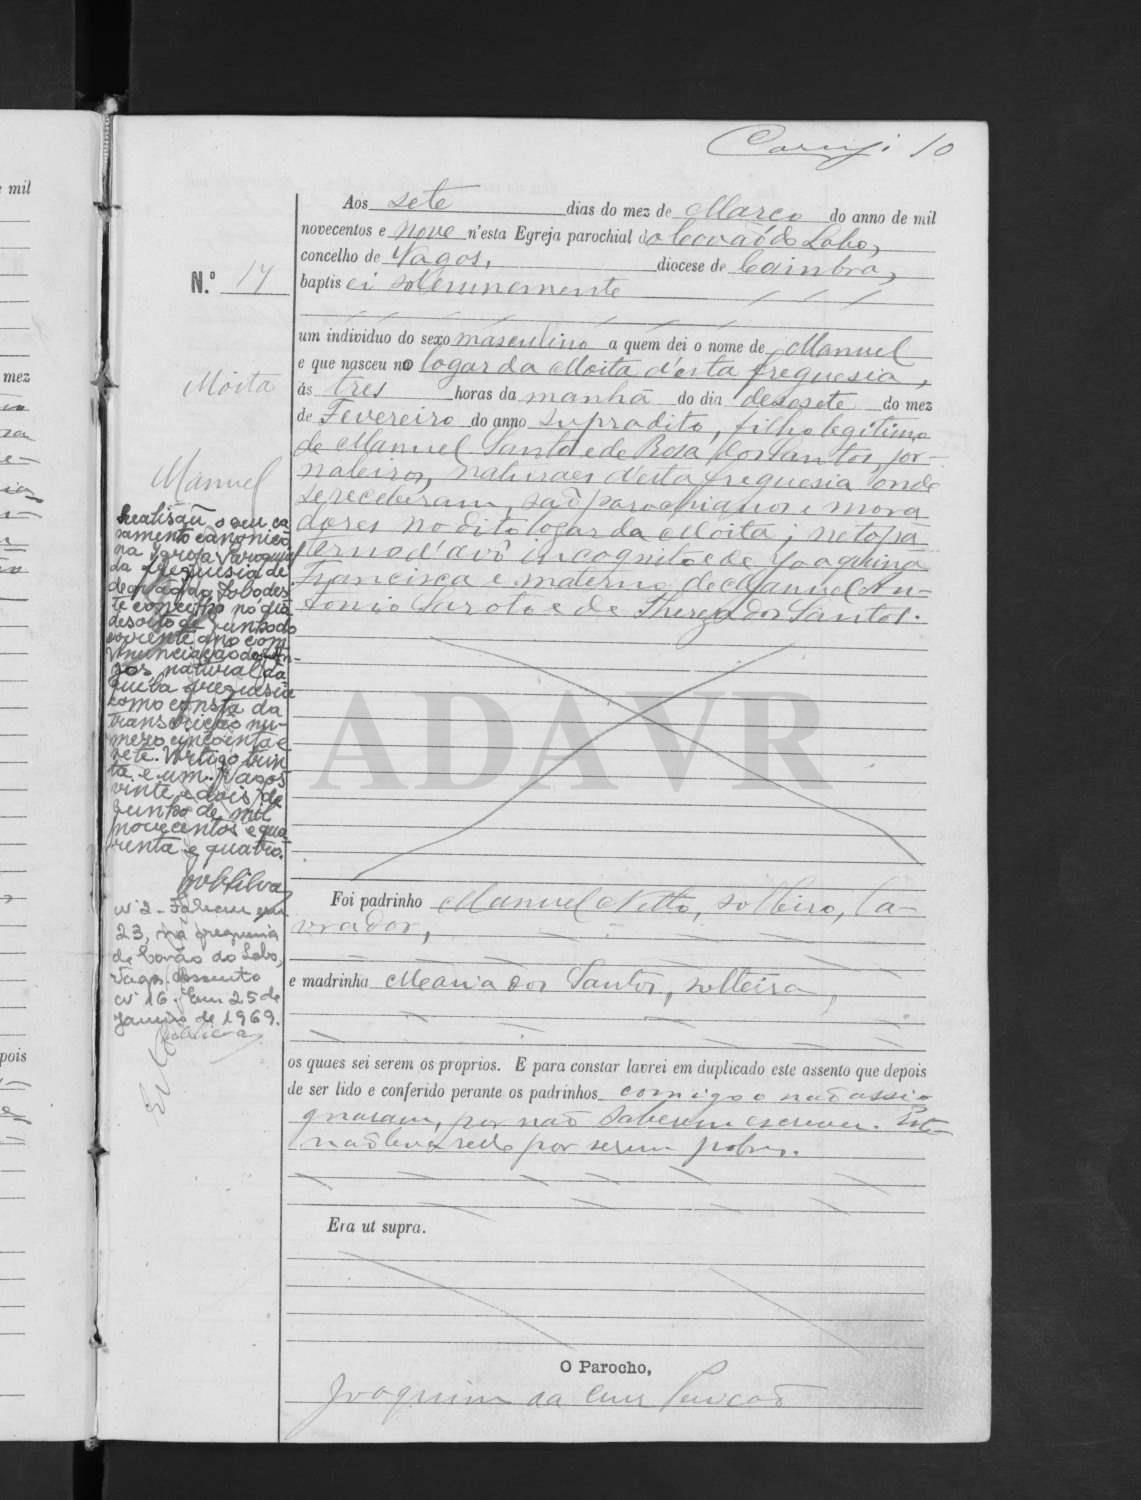 10
Aos sete dias do mez de Março do anno de mil
novecentos e nove n'esta Egreja parochial do Covão do Lobo,
concelho de Vagos, diocese de Coimbra,
baptisei solemnemente
um individuo do sexo masculino a quem dei o nome de Manuel
e que nasceu no logar da Moita d'esta freguesia,
ás tres horas da manhã do dia desasete do mez
de Fevereiro do anno supradito, filho legitimo
de Manuel Santo e de Rosa dos Santos, jor-
naleiros, naturaes d'esta freguesia onde
se receberam, são parochianos e mora
dores no dito logar da Moita; neto pa
terno d'avô incognito e de Joaquina
Francisca e materno de Manuel An-
tonio Saroto e de Thereza dos Santos.
Foi padrinho Manuel Netto, solteiro, la-
vrador,
e madrinha Maria dos Santos, solteira,
os quaes sei serem os proprios. E para constar lavrei em duplicado este assento que depois
de ser lido e conferido perante os padrinhos comigo o não assi-
gnaram, por não saberem escrever.
não leva sello por serem pobres.
Era ut supra.
O Parocho,
Joaquim da Cruz
N.º 14
Moita
Manuel
Realisou o seu ca
samento canonico
na Igreja Paroquial
da freguesia de
Covão do Lobo des
te concelho no dia
desoito de junho do
corrente ano com
Anunciação dos An-
jos, natural da
quela freguesia
como consta da
transcrição nu-
mero cincoenta e
sete. Artigo trin
ta e um. Vagos
vinte e dois de
junho de mil
novecentos e qua
renta e quatro.
Silva
Nº 2 - Faleceu em
23, na freguesia
de Covão do Lobo,
Vagos. Assento
Nº 16. Em 25 de
Janeiro de 1969.
mil
mez
pois
ADAVR